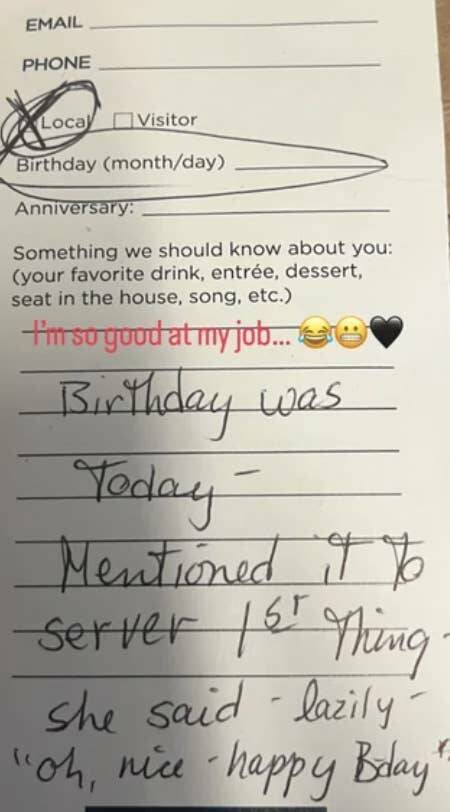 EMAIL
PHONE
Local Visitor
Birthday (month/day)
Anniversary:
Something we should know about you:
(your favorite drink, entrée, dessert,
seat in the house, song, etc.)
I'm so good at my job... 😂😬🖤
Birthday was
Today -
Mentioned it to
server 1st Thing -
she said - lazily -
"oh, nice - happy Bday"